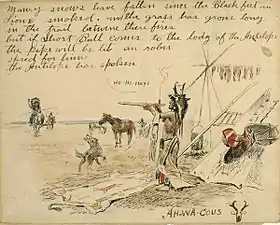 Maney snows have fallen since the Black feet an
Sioux smoked, and the grass has grone long
in the trail betwine there fires
but if Short Bull comes to the lodg of the Antilope
the pipe will be lit an robes
spred for him
the Antilope has spoken
HO-HO-HEYH
AH-WA-COUS